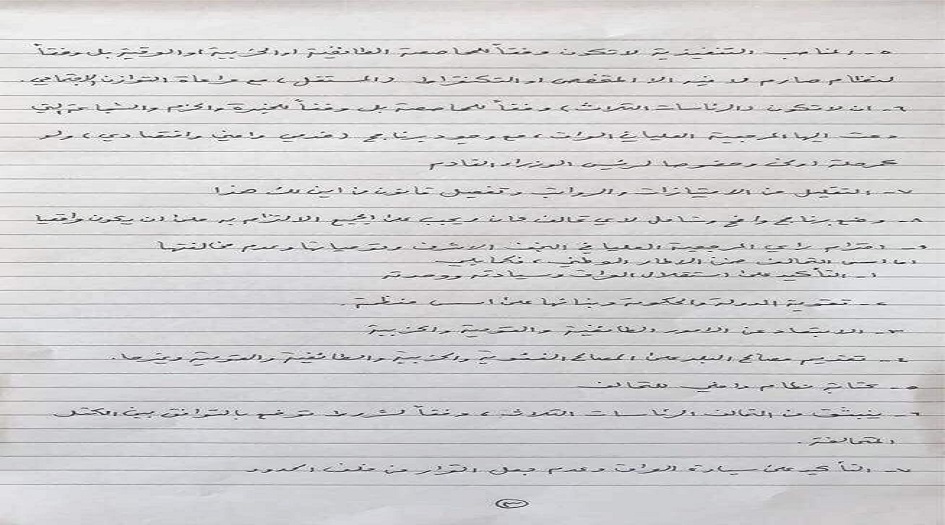 ٥- المناصب التنفيذية لا تكون وفقاً للمحاصصة الطائفية او الحزبية او العرقية بل وفقاً
لنظام صارم لا فيه الا المختص او التكنقراط والمستقل، مع مراعاة التوازن الإجتماعي.
٦- ان لا تكون (الرئاسات الثلاث) وفقاً للمحاصصة بل وفقاً للخبرة والحزم والشجاعة التي
دعت اليها المرجعية العليا في العراق، مع وجود برنامج (خدمي وامني واقتصادي) ولو
كمرحلة اولى وخصوصا لرئيس الوزراء القادم
٧- التقليل من الامتيازات والرواتب وتفعيل قانون من اين لك هذا
٨- وضع برنامج واضح وشامل لأي تحالف كان ويجب على الجميع الالتزام به على ان يكون واقعيا
٩- احترام رأي المرجعية العليا في النجف الاشرف وتوصياتها وعدم مخالفتها
اما اسس التحالف ضمن الاطار الوطني، فكما يلي
١- التأكيد على استقلال العراق وسيادته ووحدته
٢- تقوية الدولة والحكومة وبنائها على اسس منظمة.
٣- الابتعاد عن الامور الطائفية والقومية والحزبية
٤- تقديم مصالح البلد على المصالح الفئوية والحزبية والطائفية والقومية وغيرها.
٥- كتابة نظام داخلي للتحالف
٦- ينبثق من التحالف الرئاسات الثلاثة، وفقاً لشروط توضع بالتوافق بين الكتل
المتحالفة.
٧- التأكيد على سيادة العراق وعدم جعل القرار من خلف الحدود